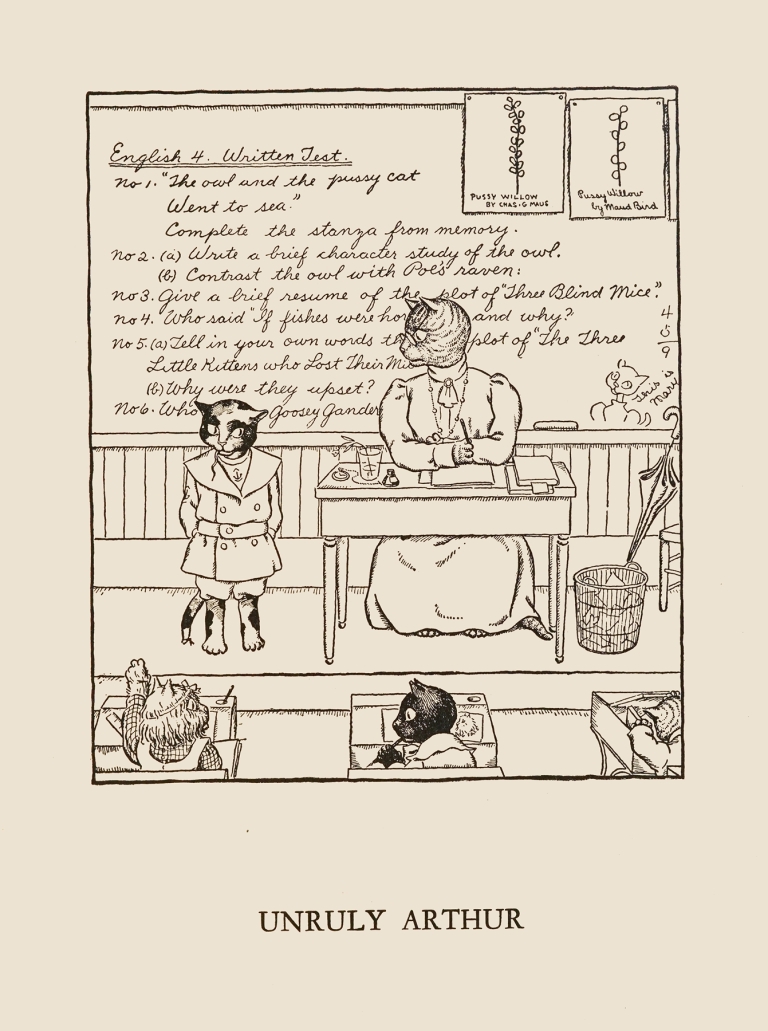 English 4. Written Test.
No 1. "The owl and the pussy cat
Went to sea."
Complete the stanza from memory.
No 2. (a) Write a brief character study of the owl.
(b) Contrast the owl with Poe's raven:
No 3. Give a brief resume of the plot of "Three Blind Mice".
No 4. Who said "If fishes were ho and why?
No 5. (a) Tell in your own words t plot of "The Three
Little Kittens who Lost Their Mi
(b) Why were they upset?
No 6. Who Goosey Gander
PUSSY WILLOW
BY CHAS. G MAUS
Pussy Willow
by Maud Bird
4
5
9
This is
Mary
UNRULY ARTHUR